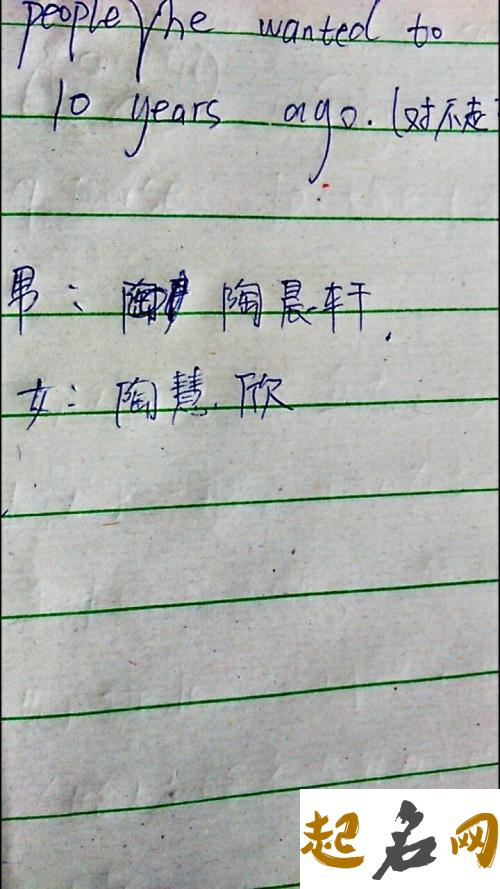 people he wanted to
10 years ago. (对不起
男: 陶晨轩.
女: 陶慧欣
起名网